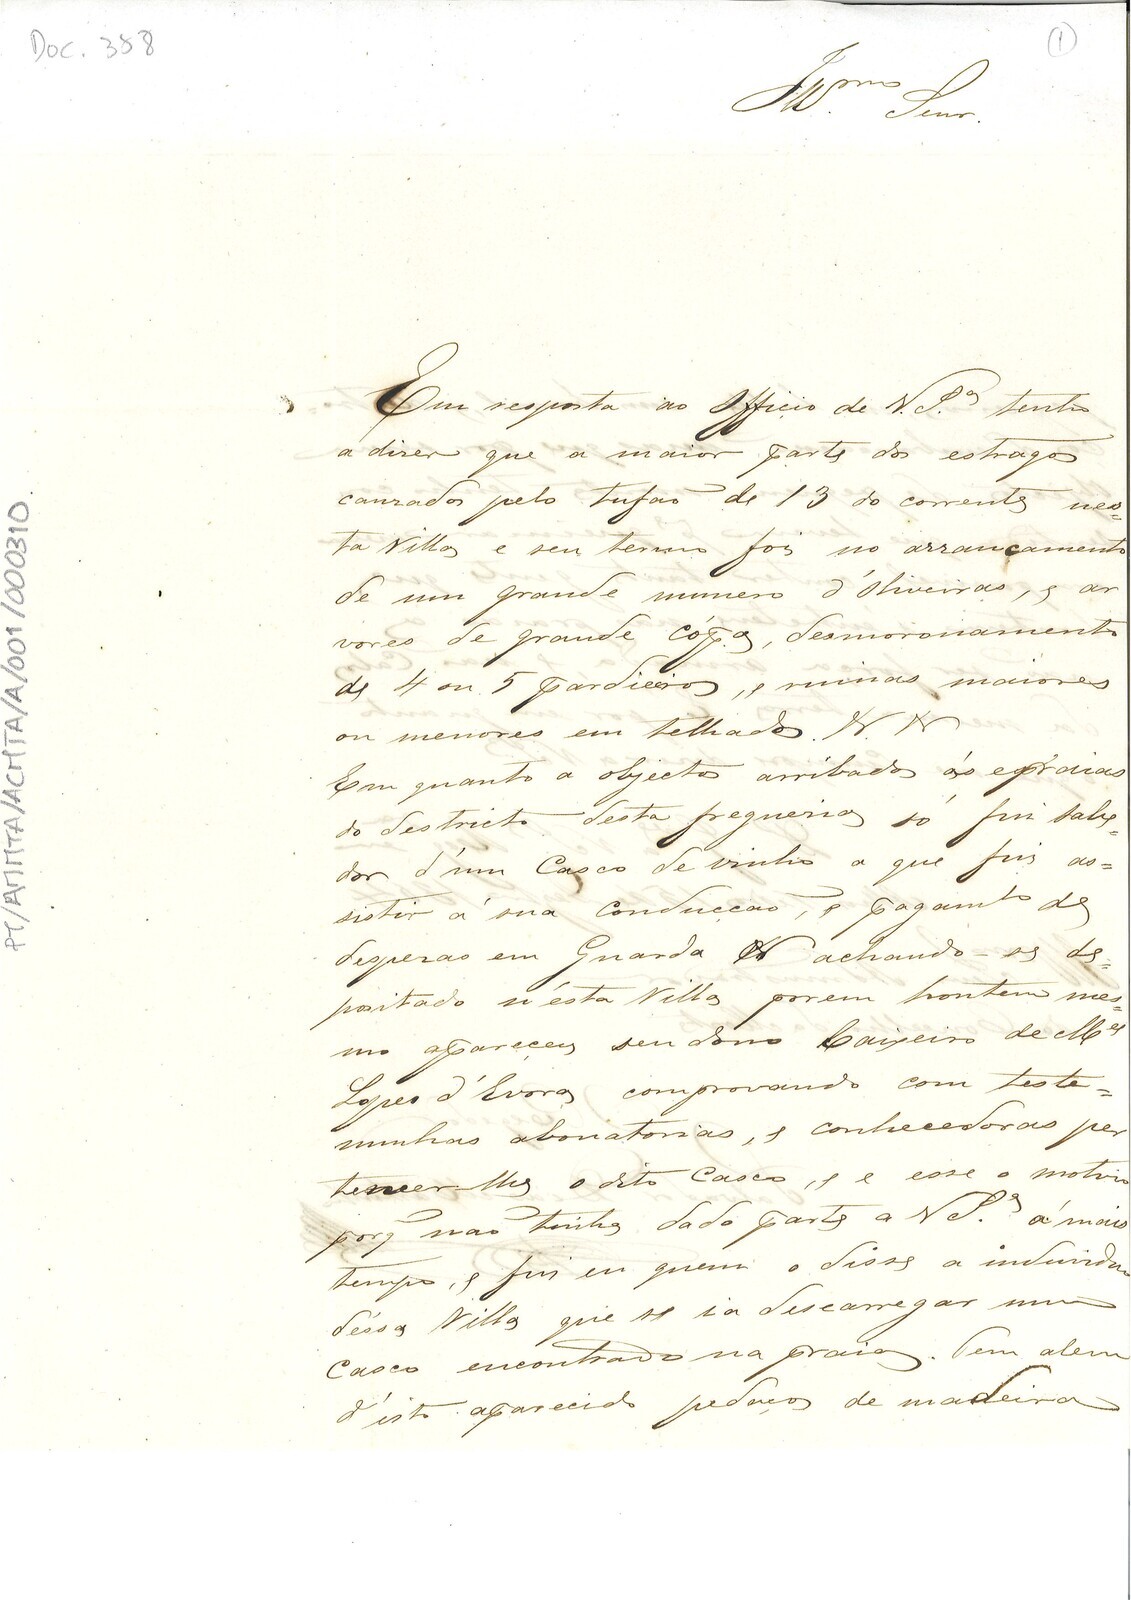 Doc. 358
1
Illmo. Senr.
Em resposta ao Officio de V. Sª tenho
a dizer que a maior parte dos estragos
cauzados pelo tufaõ de 13 do corrente nes-
ta Villa e seu termo foi no arrancamento
de um grande numero d'Oliveiras, e ar
vores de grande cópa, desmoronamento
de 4 ou 5 pardieiros, e ruinas maiores
ou menores em telhados.
Em quanto a objectos arribados ás praias
do destricto desta freguezia só fui sabe-
dor d'um Casco de vinho a que fui as-
sistir á sua conducçaõ, e pagamto de
despezas em Guarda achando-se de-
pozitado n'ésta Villa porem hontem mes-
mo apareceu seu dono Caixeiro de Mel
Lopes d'Evora comprovando com teste-
munhas abonatorias, e conhecedoras per
tencer-lhe o dito Casco, e é esse o motivo
porq naõ tinha dado parte a V Sª á mais
tempo, e fui eu quem o disse a individuo
déssa Villa que se ia descarregar um
Casco encontrado na praia. Tem alem
d'isto aparecido pedaços de madeira
PT/AMMTA/ACMTA/A/001/000310